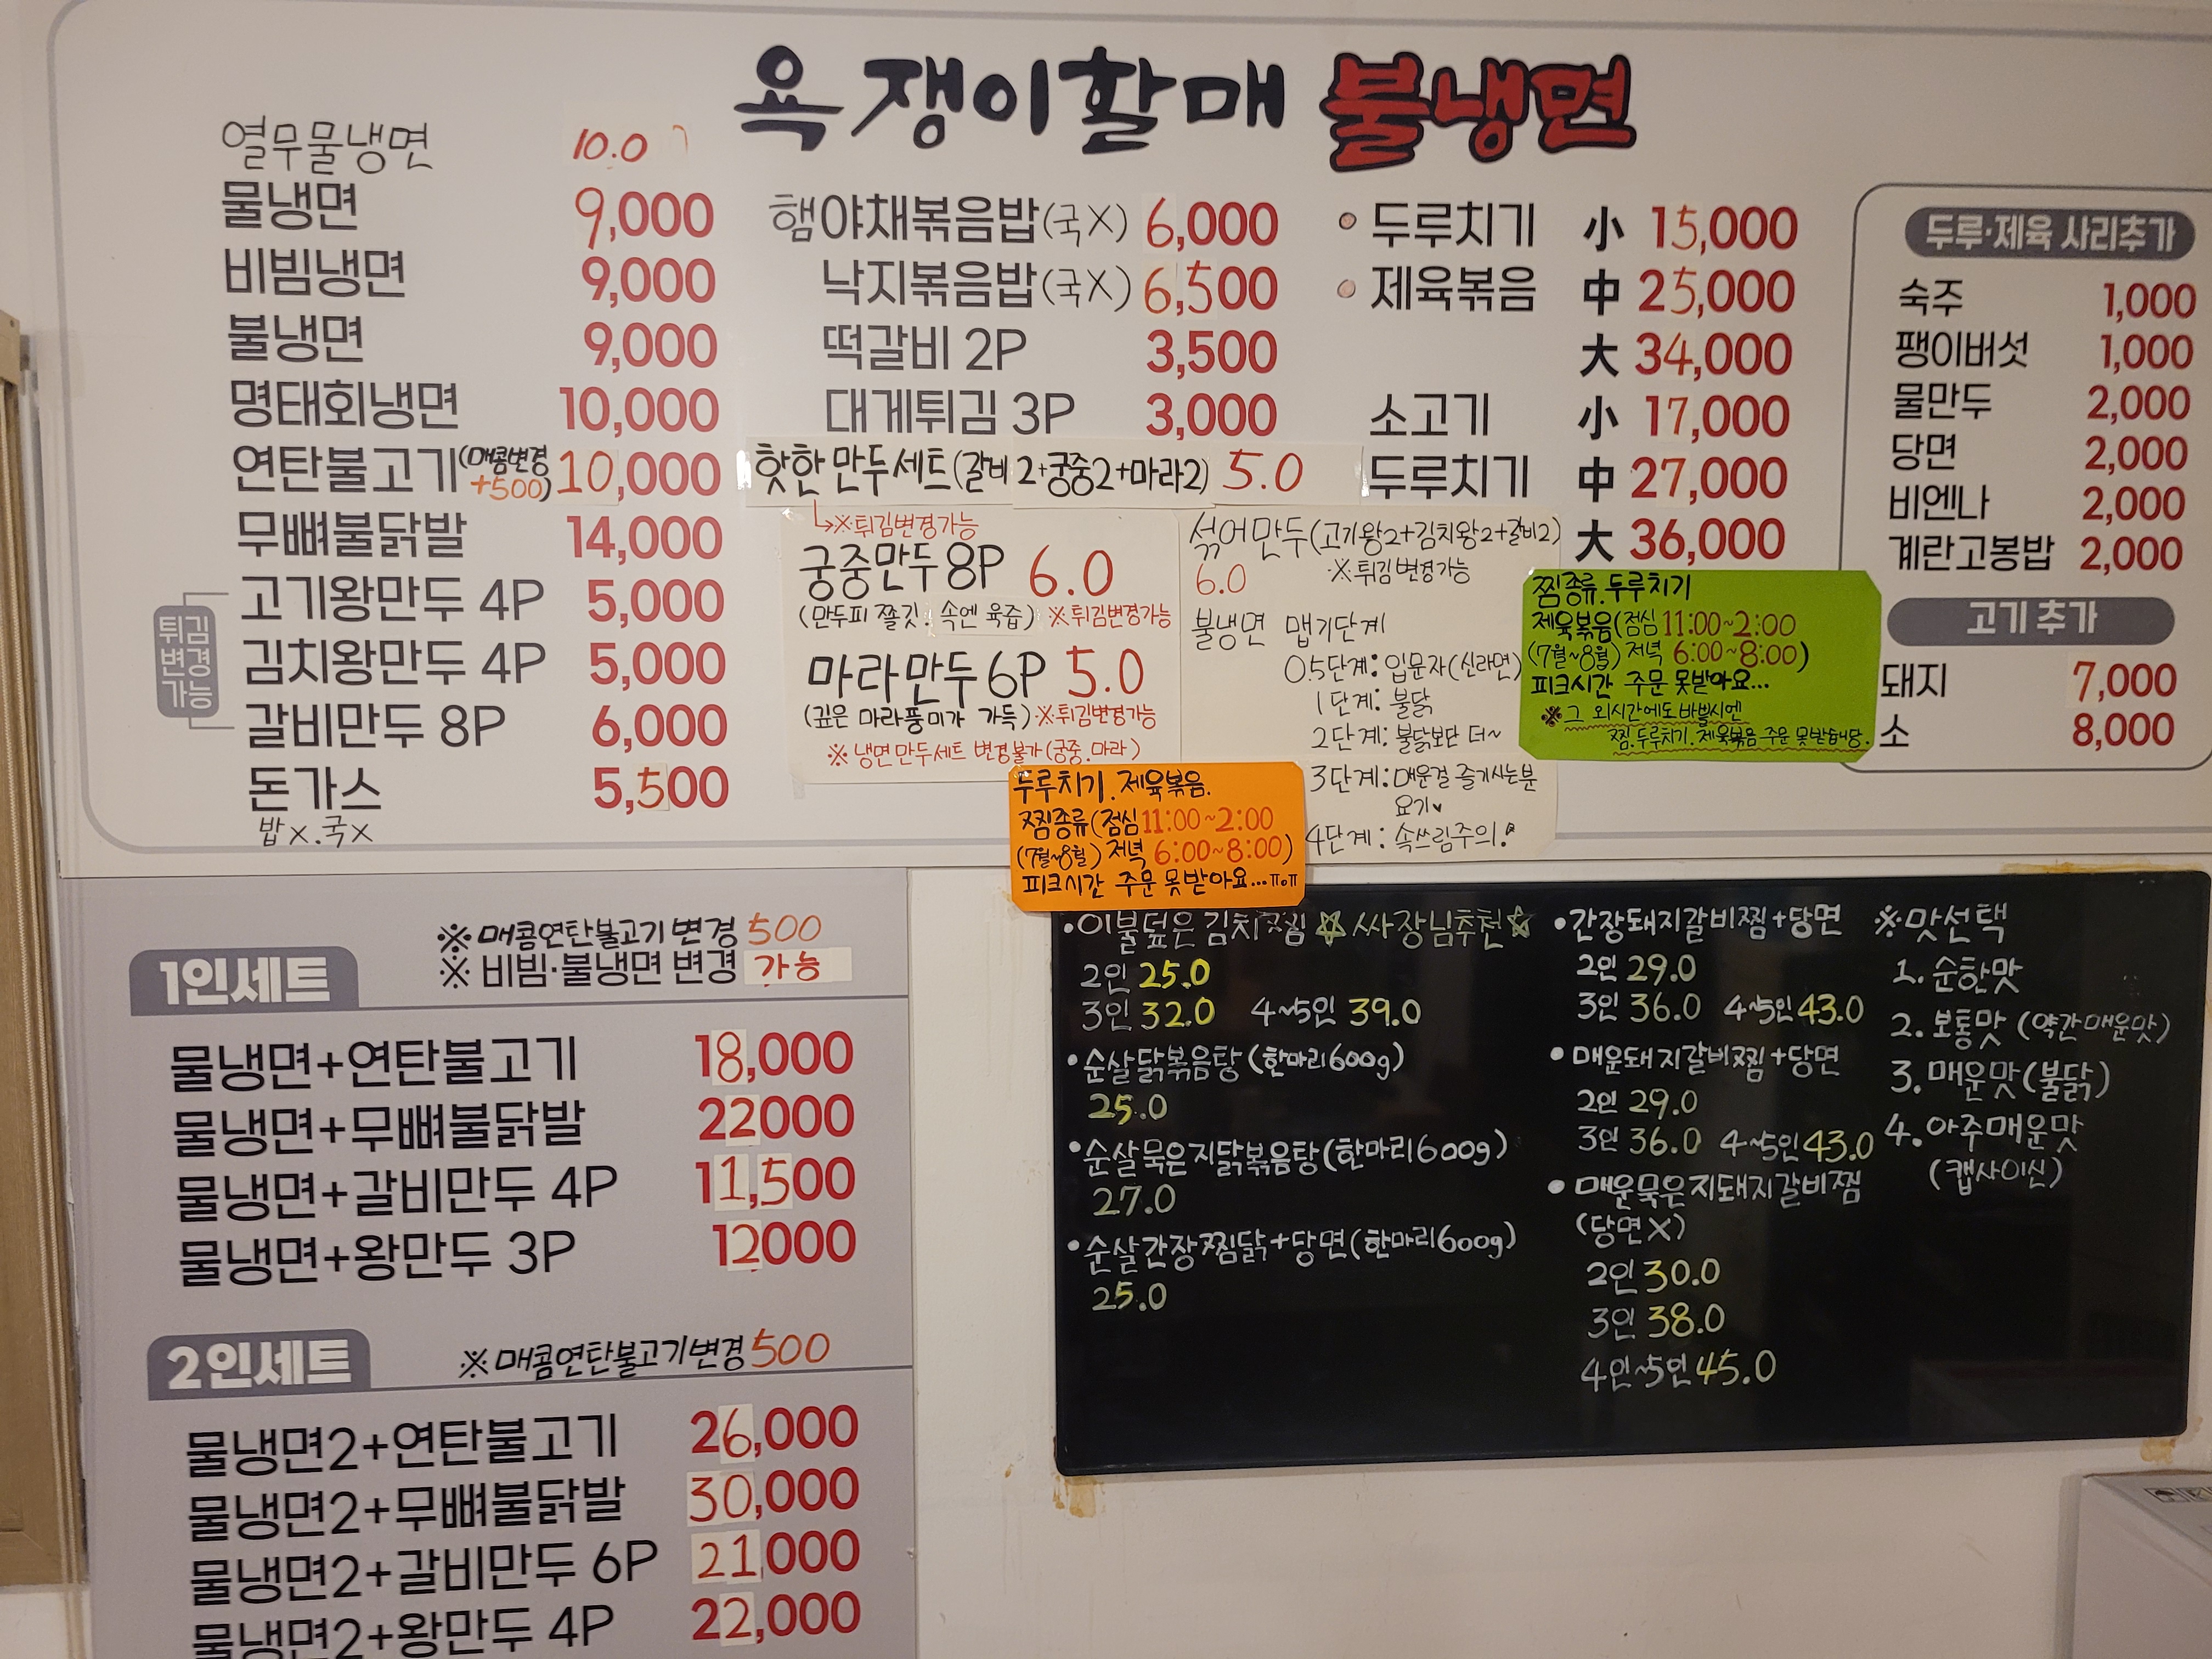 욕쟁이할매 불냉면
열무물냉면 10.0
물냉면 9,000
비빔냉면 9,000
불냉면 9,000
명태회냉면 10,000
연탄불고기(매콤변경 +500) 10,000
무뼈불닭발 14,000
튀김 변경 가능
고기왕만두 4P 5,000
김치왕만두 4P 5,000
갈비만두 8P 6,000
돈가스 5,500
밥X.국X
햄야채볶음밥(국X) 6,000
낙지볶음밥(국X) 6,500
떡갈비 2P 3,500
대게튀김 3P 3,000
핫한만두세트(갈비2+궁중2+마라2) 5.0
↳※튀김변경가능
궁중만두8P 6.0
(만두피 쫄깃. 속엔 육즙) ※튀김변경가능
마라만두6P 5.0
(깊은 마라풍미가 가득)※튀김변경가능
※냉면만두세트 변경불가(궁중.마라)
섞어만두(고기왕2+김치왕2+갈비2)
6.0 ※튀김변경가능
불냉면 맵기단계
0.5단계: 입문자(신라면)
1단계: 불닭
2단계: 불닭보단 더~
3단계: 매운걸 즐기시는분
요기♥
4단계: 속쓰림주의!
두루치기 小 15,000
제육볶음 中 25,000
大 34,000
소고기 小 17,000
두루치기 中 27,000
大 36,000
두루·제육 사리추가
숙주 1,000
팽이버섯 1,000
물만두 2,000
당면 2,000
비엔나 2,000
계란고봉밥 2,000
고기 추가
돼지 7,000
소 8,000
찜종류.두루치기
제육볶음(점심 11:00~2:00
(7월~8월) 저녁 6:00~8:00)
피크시간 주문 못받아요...
※그 외시간에도바쁠시엔
찜.두루치기.제육볶음 주문 못받습니당.
두루치기.제육볶음.
찜종류(점심 11:00~2:00
(7월~8월) 저녁 6:00~8:00)
피크시간 주문 못받아요...ㅠ.ㅠ
※매콤연탄불고기변경 500
1인세트 ※비빔·불냉면 변경 가능
물냉면+연탄불고기 18,000
물냉면+무뼈불닭발 22000
물냉면+갈비만두 4P 11,500
물냉면+왕만두 3P 12000
2인세트 ※매콤연탄불고기변경 500
물냉면2+연탄불고기 26,000
물냉면2+무뼈불닭발 30,000
물냉면2+갈비만두 6P 21,000
물냉면2+왕만두 4P 22,000
•이불덮은김치찜 ☆싸장님추천☆
2인 25.0
3인 32.0 4~5인 39.0
•순살닭볶음탕(한마리600g)
25.0
•순살묵은지닭볶음탕(한마리600g)
27.0
•순살간장찜닭+당면(한마리600g)
25.0
•간장돼지갈비찜+당면
2인 29.0
3인 36.0 4~5인 43.0
•매운돼지갈비찜+당면
2인 29.0
3인 36.0 4~5인 43.0
•매운묵은지돼지갈비찜
(당면X)
2인 30.0
3인 38.0
4인~5인 45.0
※맛선택
1. 순한맛
2. 보통맛 (약간매운맛)
3. 매운맛(불닭)
4. 아주매운맛
(캡사이신)